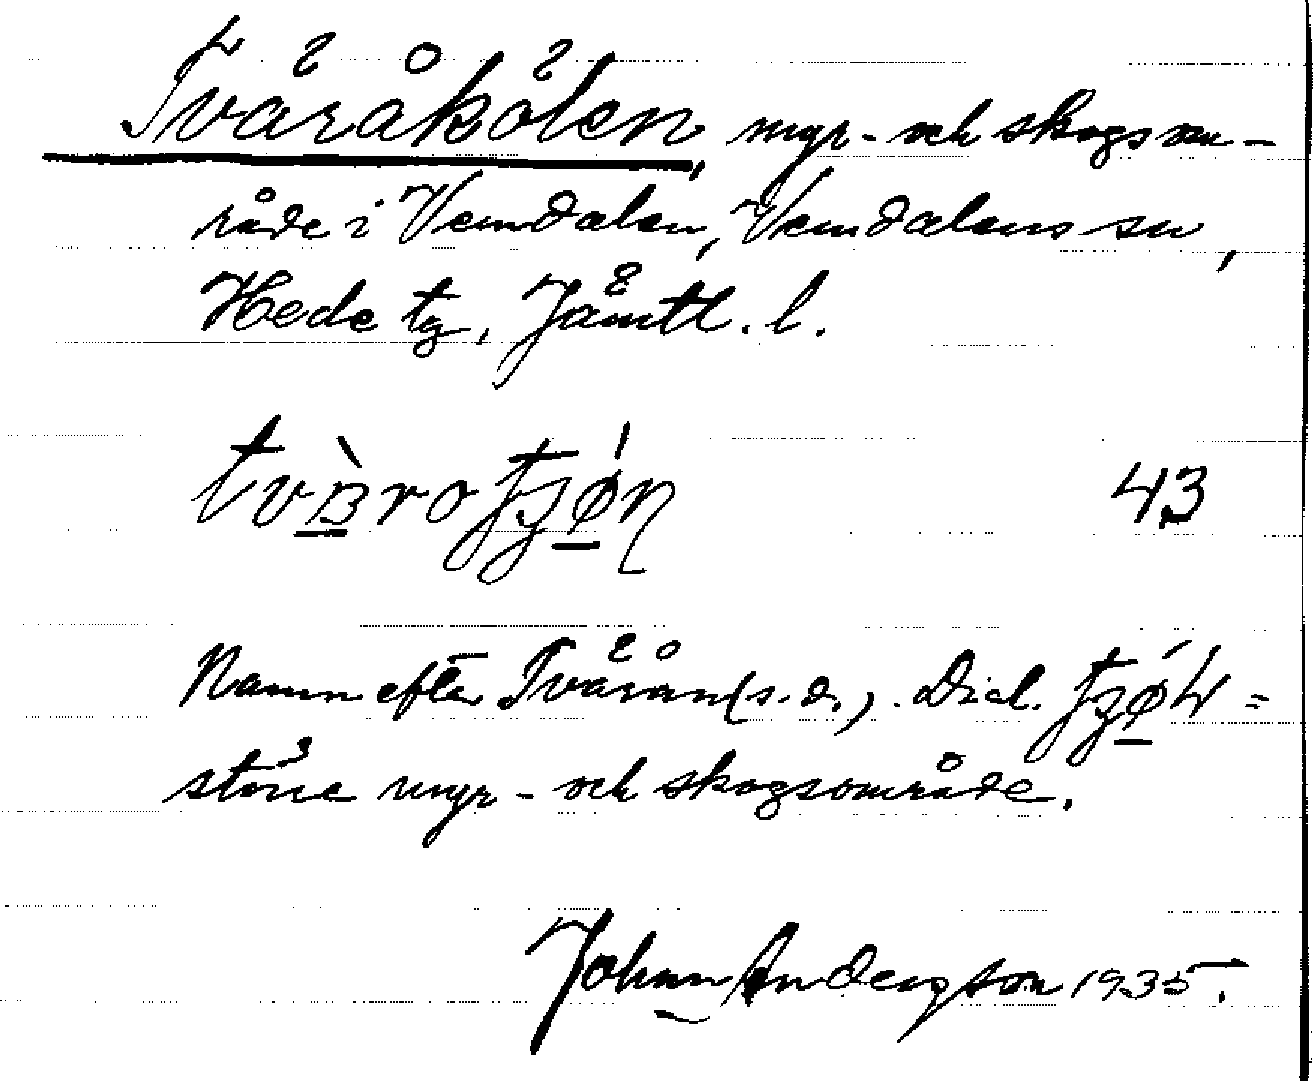 Tväråkölen, myr- och skogsom-
råde i Vemdalen, Vemdalens sn,
Hede tg, Jämtl. l.
43
Namn efter Tvärån (s. d.). Dial.
större myr- och skogsområde.
Johan Andersson 1935.